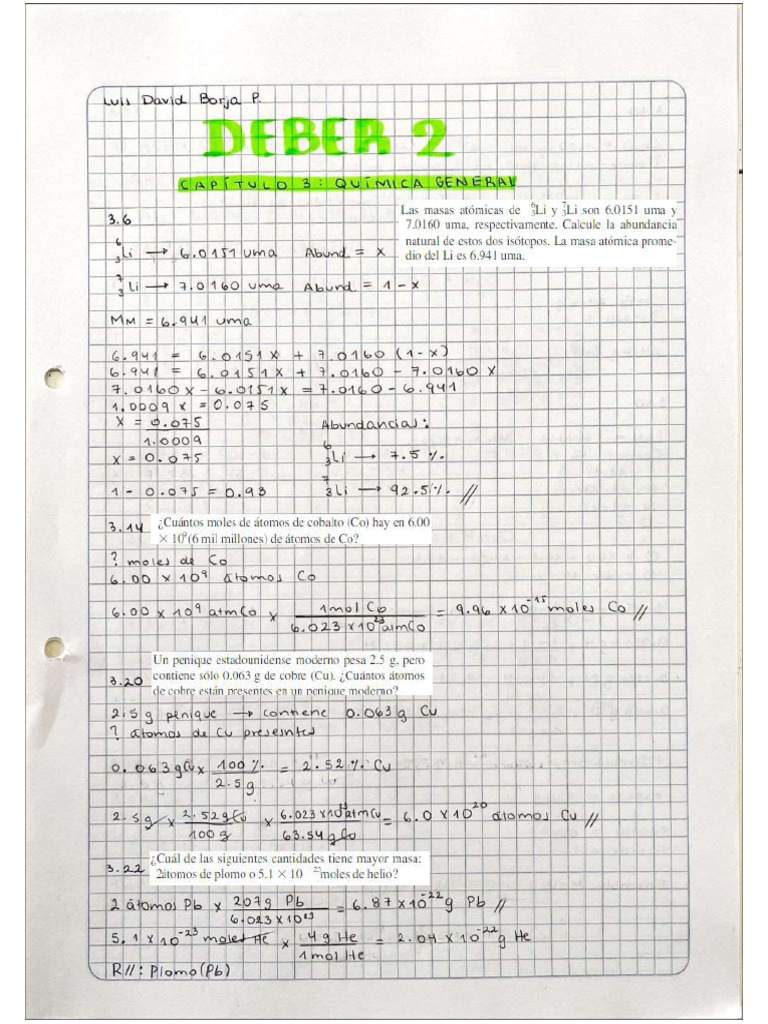 Luis David Borja P.
DEBER 2
CAPÍTULO 3: QUÍMICA GENERAL
3.6
Las masas atómicas de ⁶₃Li y ⁷₃Li son 6.0151 uma y
7.0160 uma, respectivamente. Calcule la abundancia
natural de estos dos isótopos. La masa atómica prome-
dio del Li es 6.941 uma.
⁶₃Li → 6.0151 uma Abund = x
⁷₃Li → 7.0160 uma Abund. = 1 - x
MM = 6.941 uma
6.941 = 6.0151 x + 7.0160 (1-x)
6.941 = 6.0151 x + 7.0160 - 7.0160 x
7.0160x - 6.0151x = 7.0160 - 6.941
1.0009 x = 0.075
x = 0.075
1.0009
Abundancias:
x = 0.075
⁶₃Li → 7.5 %
1 - 0.075 = 0.93
⁷₃Li → 92.5% //
3.14
¿Cuántos moles de átomos de cobalto (Co) hay en 6.00
× 10⁹ (6 mil millones) de átomos de Co?
? moles de Co
6.00 x 10⁹ átomos Co
6.00 x 10⁹ atmCo x 1mol Co / 6.023 x10²³ atmCo = 9.96 x 10⁻¹⁵ moles Co //
3.20
Un penique estadounidense moderno pesa 2.5 g, pero
contiene sólo 0.063 g de cobre (Cu). ¿Cuántos átomos
de cobre están presentes en un penique moderno?
2.5 g penique → contiene 0.063 g Cu
? átomos de Cu presesntes
0.063 gCu x 100 % / 2.5 g = 2.52 % Cu
2.5g x 2.52gCu / 100g x 6.023 x10²³ atmCu / 63.54 gCu = 6.0 x 10²⁰ átomos Cu //
3.22
¿Cuál de las siguientes cantidades tiene mayor masa:
2átomos de plomo o 5.1 × 10 ²³moles de helio?
2 átomos Pb x 207g Pb / 6.023 x10²³ = 6.87 x 10⁻²² g Pb //
5.1 x 10⁻²³ moles He x 4 g He / 1 mol He = 2.04 x 10⁻²² g He
R//: Plomo (Pb)